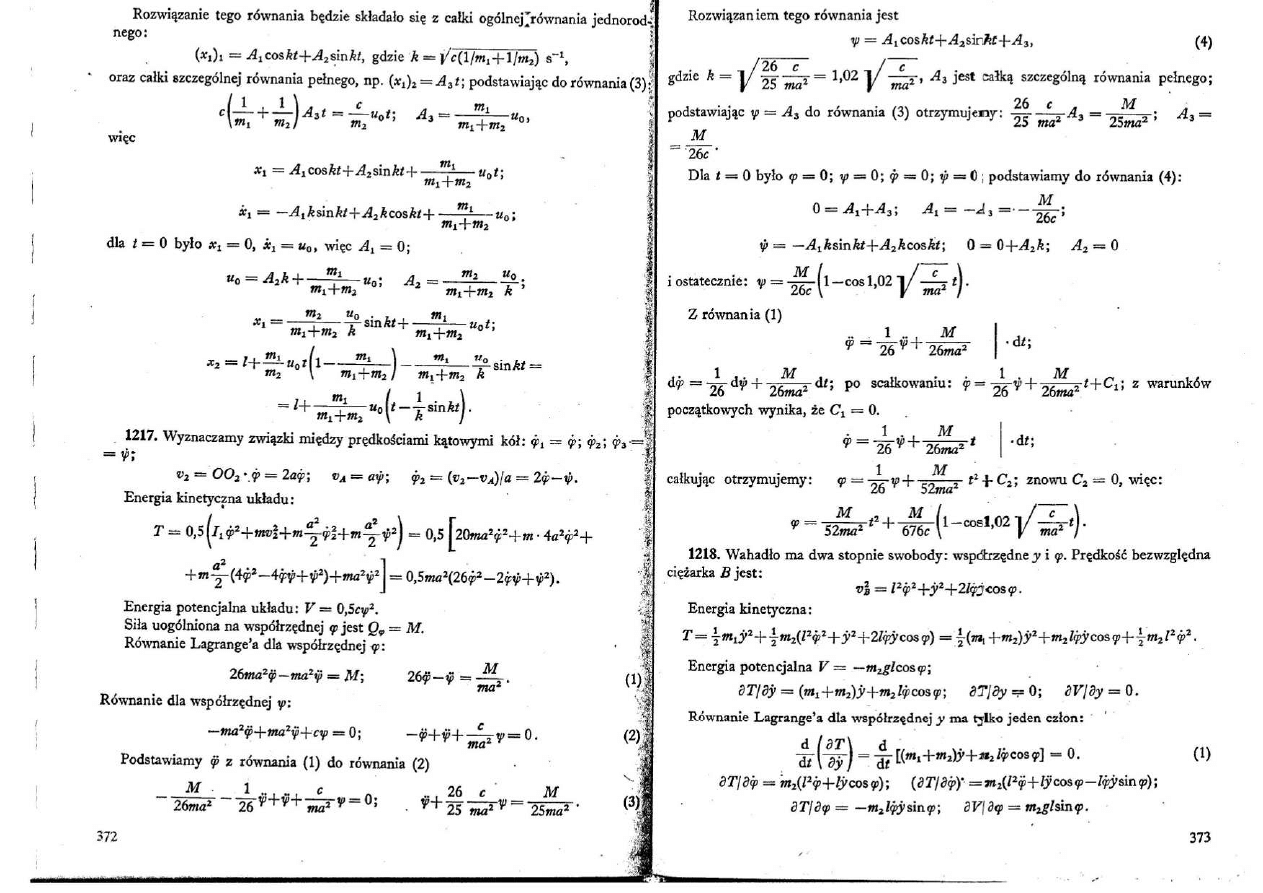 Rozwiązanie tego równania będzie składało się z całki ogólnej równania jednorod-
nego:
(x₁)₁ = A₁ cos kt + A₂ sin kt, gdzie k = √(c(1/m₁+1/m₂)) s⁻¹,
oraz całki szczególnej równania pełnego, np. (x₁)₂ = A₃t; podstawiając do równania (3):
c(1/m₁ + 1/m₂) A₃t = c/m₂ u₀t; A₃ = m₁/(m₁+m₂) u₀,
więc
x₁ = A₁ cos kt + A₂ sin kt + m₁/(m₁+m₂) u₀t;
ẋ₁ = —A₁k sin kt + A₂k cos kt + m₁/(m₁+m₂) u₀;
dla t = 0 było x₁ = 0, ẋ₁ = u₀, więc A₁ = 0;
u₀ = A₂k + m₁/(m₁+m₂) u₀; A₂ = m₂/(m₁+m₂) u₀/k;
x₁ = m₂/(m₁+m₂) u₀/k sin kt + m₁/(m₁+m₂) u₀t;
x₂ = l + m₁/m₂ u₀t(1 — m₁/(m₁+m₂)) — m₁/(m₁+m₂) u₀/k sin kt =
= l + m₁/(m₁+m₂) u₀(t — 1/k sin kt).
1217. Wyznaczamy związki między prędkościami kątowymi kół: φ̇₁ = φ̇; φ̇₂; φ̇₃ =
= ψ̇;
v₂ = OO₂·φ̇ = 2aφ̇; v_A = aψ̇; φ̇₂ = (v₂—v_A)/a = 2φ̇—ψ̇.
Energia kinetyczna układu:
T = 0,5(I₁φ̇² + mv₂² + m a²/2 φ̇₂² + m a²/2 ψ̇²) = 0,5[20ma²φ̇² + m · 4a²φ̇² +
+ m a²/2 (4φ̇²—4φ̇ψ̇+ψ̇²) + ma²ψ̇²] = 0,5ma²(26φ̇²—2φ̇ψ̇+ψ̇²).
Energia potencjalna układu: V = 0,5cψ².
Siła uogólniona na współrzędnej φ jest Q_φ = M.
Równanie Lagrange'a dla współrzędnej φ:
26ma²φ̈ — ma²ψ̈ = M; 26φ̈ — ψ̈ = M/ma². (1)
Równanie dla współrzędnej ψ:
—ma²φ̈ + ma²ψ̈ + cψ = 0; —φ̈ + ψ̈ + c/ma² ψ = 0. (2)
Podstawiamy φ̈ z równania (1) do równania (2)
— M/26ma² — 1/26 ψ̈ + ψ̈ + c/ma² ψ = 0; ψ̈ + 26/25 c/ma² ψ = M/25ma². (3)
372
Rozwiązaniem tego równania jest
ψ = A₁ cos kt + A₂ sin kt + A₃, (4)
gdzie k = √(26/25 c/ma²) = 1,02 √(c/ma²), A₃ jest całką szczególną równania pełnego;
podstawiając ψ = A₃ do równania (3) otrzymujemy: 26/25 c/ma² A₃ = M/25ma²; A₃ =
= M/26c.
Dla t = 0 było φ = 0; ψ = 0; φ̇ = 0; ψ̇ = 0; podstawiamy do równania (4):
0 = A₁+A₃; A₁ = —A₃ = — M/26c;
ψ̇ = —A₁k sin kt + A₂k cos kt; 0 = 0+A₂k; A₂ = 0
i ostatecznie: ψ = M/26c (1—cos 1,02 √(c/ma²) t).
Z równania (1)
φ̈ = 1/26 ψ̈ + M/26ma² | ·dt;
dφ̇ = 1/26 dψ̇ + M/26ma² dt; po scałkowaniu: φ̇ = 1/26 ψ̇ + M/26ma² t + C₁; z warunków
początkowych wynika, że C₁ = 0.
φ̇ = 1/26 ψ̇ + M/26ma² t | ·dt;
całkując otrzymujemy: φ = 1/26 ψ + M/52ma² t² + C₂; znowu C₂ = 0, więc:
φ = M/52ma² t² + M/676c (1—cos1,02 √(c/ma²) t).
1218. Wahadło ma dwa stopnie swobody: współrzędne y i φ. Prędkość bezwzględna
ciężarka B jest:
v_B² = l²φ̇²+ẏ²+2lφ̇ẏ cos φ.
Energia kinetyczna:
T = ½m₁ẏ² + ½m₂(l²φ̇²+ẏ²+2lφ̇ẏ cos φ) = ½(m₁+m₂)ẏ² + m₂lφ̇ẏ cos φ + ½m₂l²φ̇².
Energia potencjalna V = —m₂gl cos φ;
∂T/∂ẏ = (m₁+m₂)ẏ + m₂lφ̇ cos φ; ∂T/∂y = 0; ∂V/∂y = 0.
Równanie Lagrange'a dla współrzędnej y ma tylko jeden człon:
d/dt (∂T/∂ẏ) = d/dt [(m₁+m₂)ẏ + m₂lφ̇ cos φ] = 0. (1)
∂T/∂φ̇ = m₂(l²φ̇+lẏ cos φ); (∂T/∂φ̇)˙ = m₂(l²φ̈+lÿ cos φ—lφ̇ẏ sin φ);
∂T/∂φ = —m₂lφ̇ẏ sin φ; ∂V/∂φ = m₂gl sin φ.
373